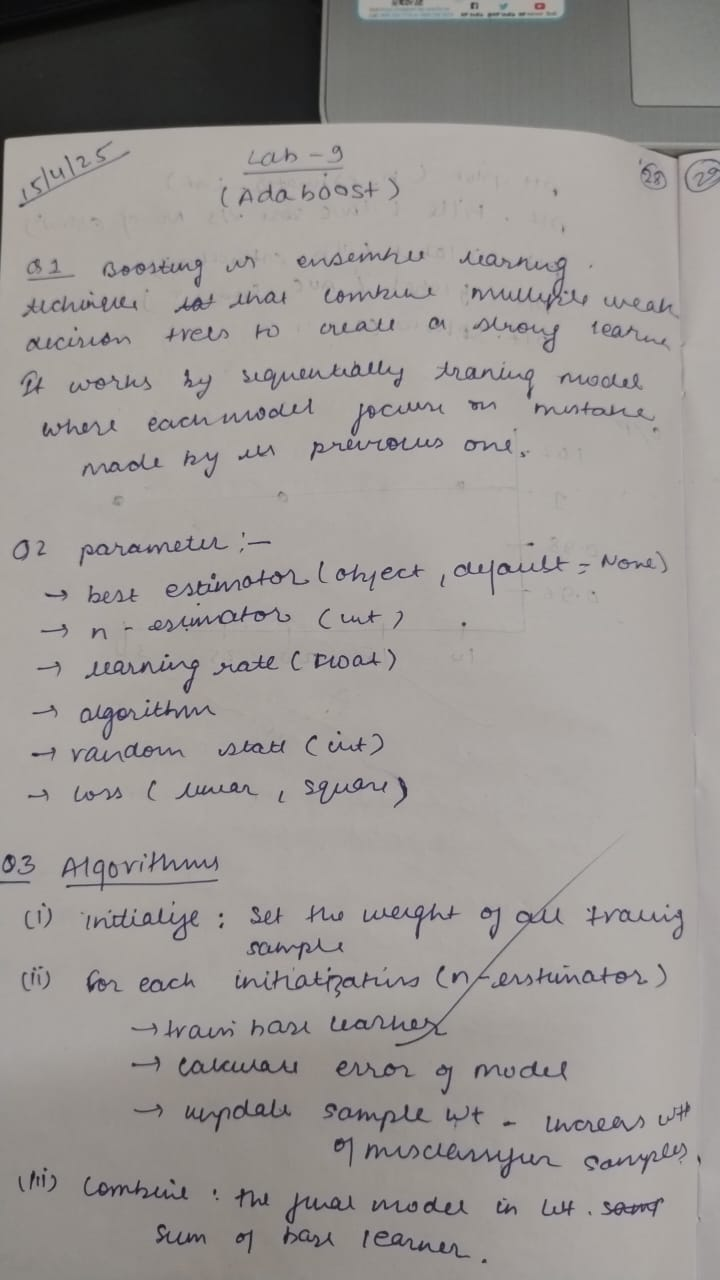 15/4/25
Lab-9
(Adaboost)
28
29
Q1 Boosting is ensemble learning.
that combine multiple weak
decision trees to create a strong learne
It works by sequentially traning model
where each model focuse on mistake
made by its previous one.
Q2 parameter :-
→ best estimator (object, default = None)
→ n - esimator (int)
→ learning rate (float)
→ algorithm
→ random state (int)
→ loss (linear, square)
Q3 Algorithms
(i) initialize : Set the weight of all traing
sample
(ii) for each initiatizations (n-erstimator)
→ train base learner
→ calculate error of model
→ update sample wt - Increas wt
of misclassifier samples.
(iii) Combine : the final model in wt.
sum of base learner.